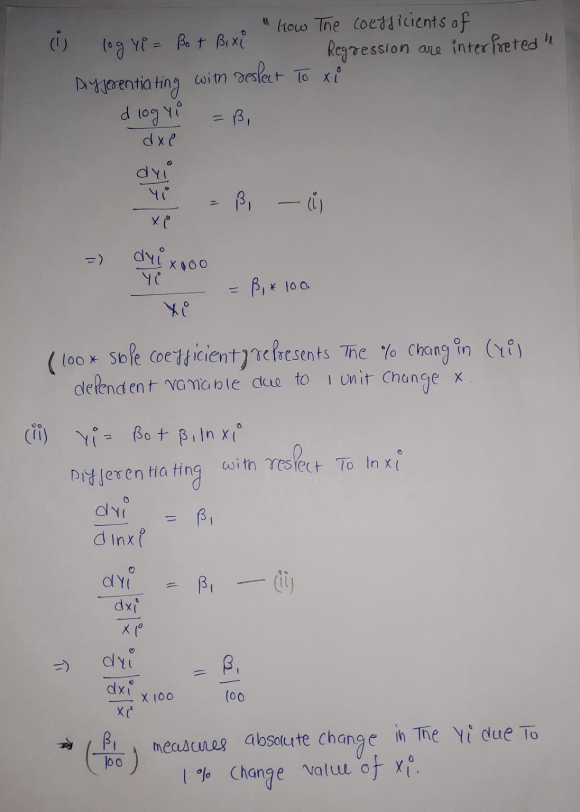 " How The coefficients of
Regression are interpreted "
(i) log Yi = β0 + β1xi
Differentiating with respect To xi
d log Yi / dxi = β1
dyi/Yi / xi = β1 — (i)
=) dyi/Yi × 100 / xi = β1 * 100
(100 * slope coefficient) represents The % chang in (Yi)
dependent variable due to 1 unit change x.
(ii) Yi = β0 + β1 ln xi
Differentiating with respect To ln xi
dyi / d lnxi = β1
dyi / dxi/xi = β1 — (ii)
=) dyi / dxi/xi × 100 = β1/100
⇒ (β1/100) measures absolute change in The Yi due To
1 % change value of xi.